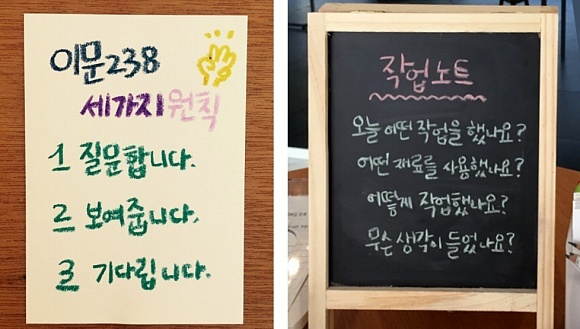 이문238
세가지 원칙
1 질문합니다.
2 보여줍니다.
3 기다립니다.
작업노트
오늘 어떤 작업을 했나요?
어떤 재료를 사용했나요?
어떻게 작업했나요?
무슨 생각이 들었나요?